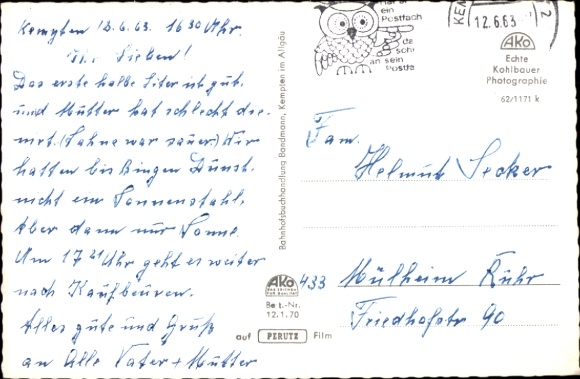 Kempten 12.6.63. 16 30 Uhr.
Ihr Lieben!
Das erste halbe Liter ist gut.
und Mutter hat schlecht
(Sahne war sauer) Wir
hatten bis Bingen Dunst.
nicht ein Sonnenstahl.
Aber dann nur Sonne.
Um 17 21 Uhr geht es weiter
nach Kaufbeuren.
Alles gute und Gruß
an Alle Vater + Mutter
Bahnhofsbuchhandlung Bandmann, Kempten im Allgäu
ein
Postfach
an sein
KEM
12.6.63
2
AKO
Echte
Kohlbauer
Photographie
62/1171 k
Fam.
Helmut Secker
433 Mülheim Ruhr
Friedhofstr 90
AKO
Best.-Nr.
12.1.70
auf PERUTZ Film